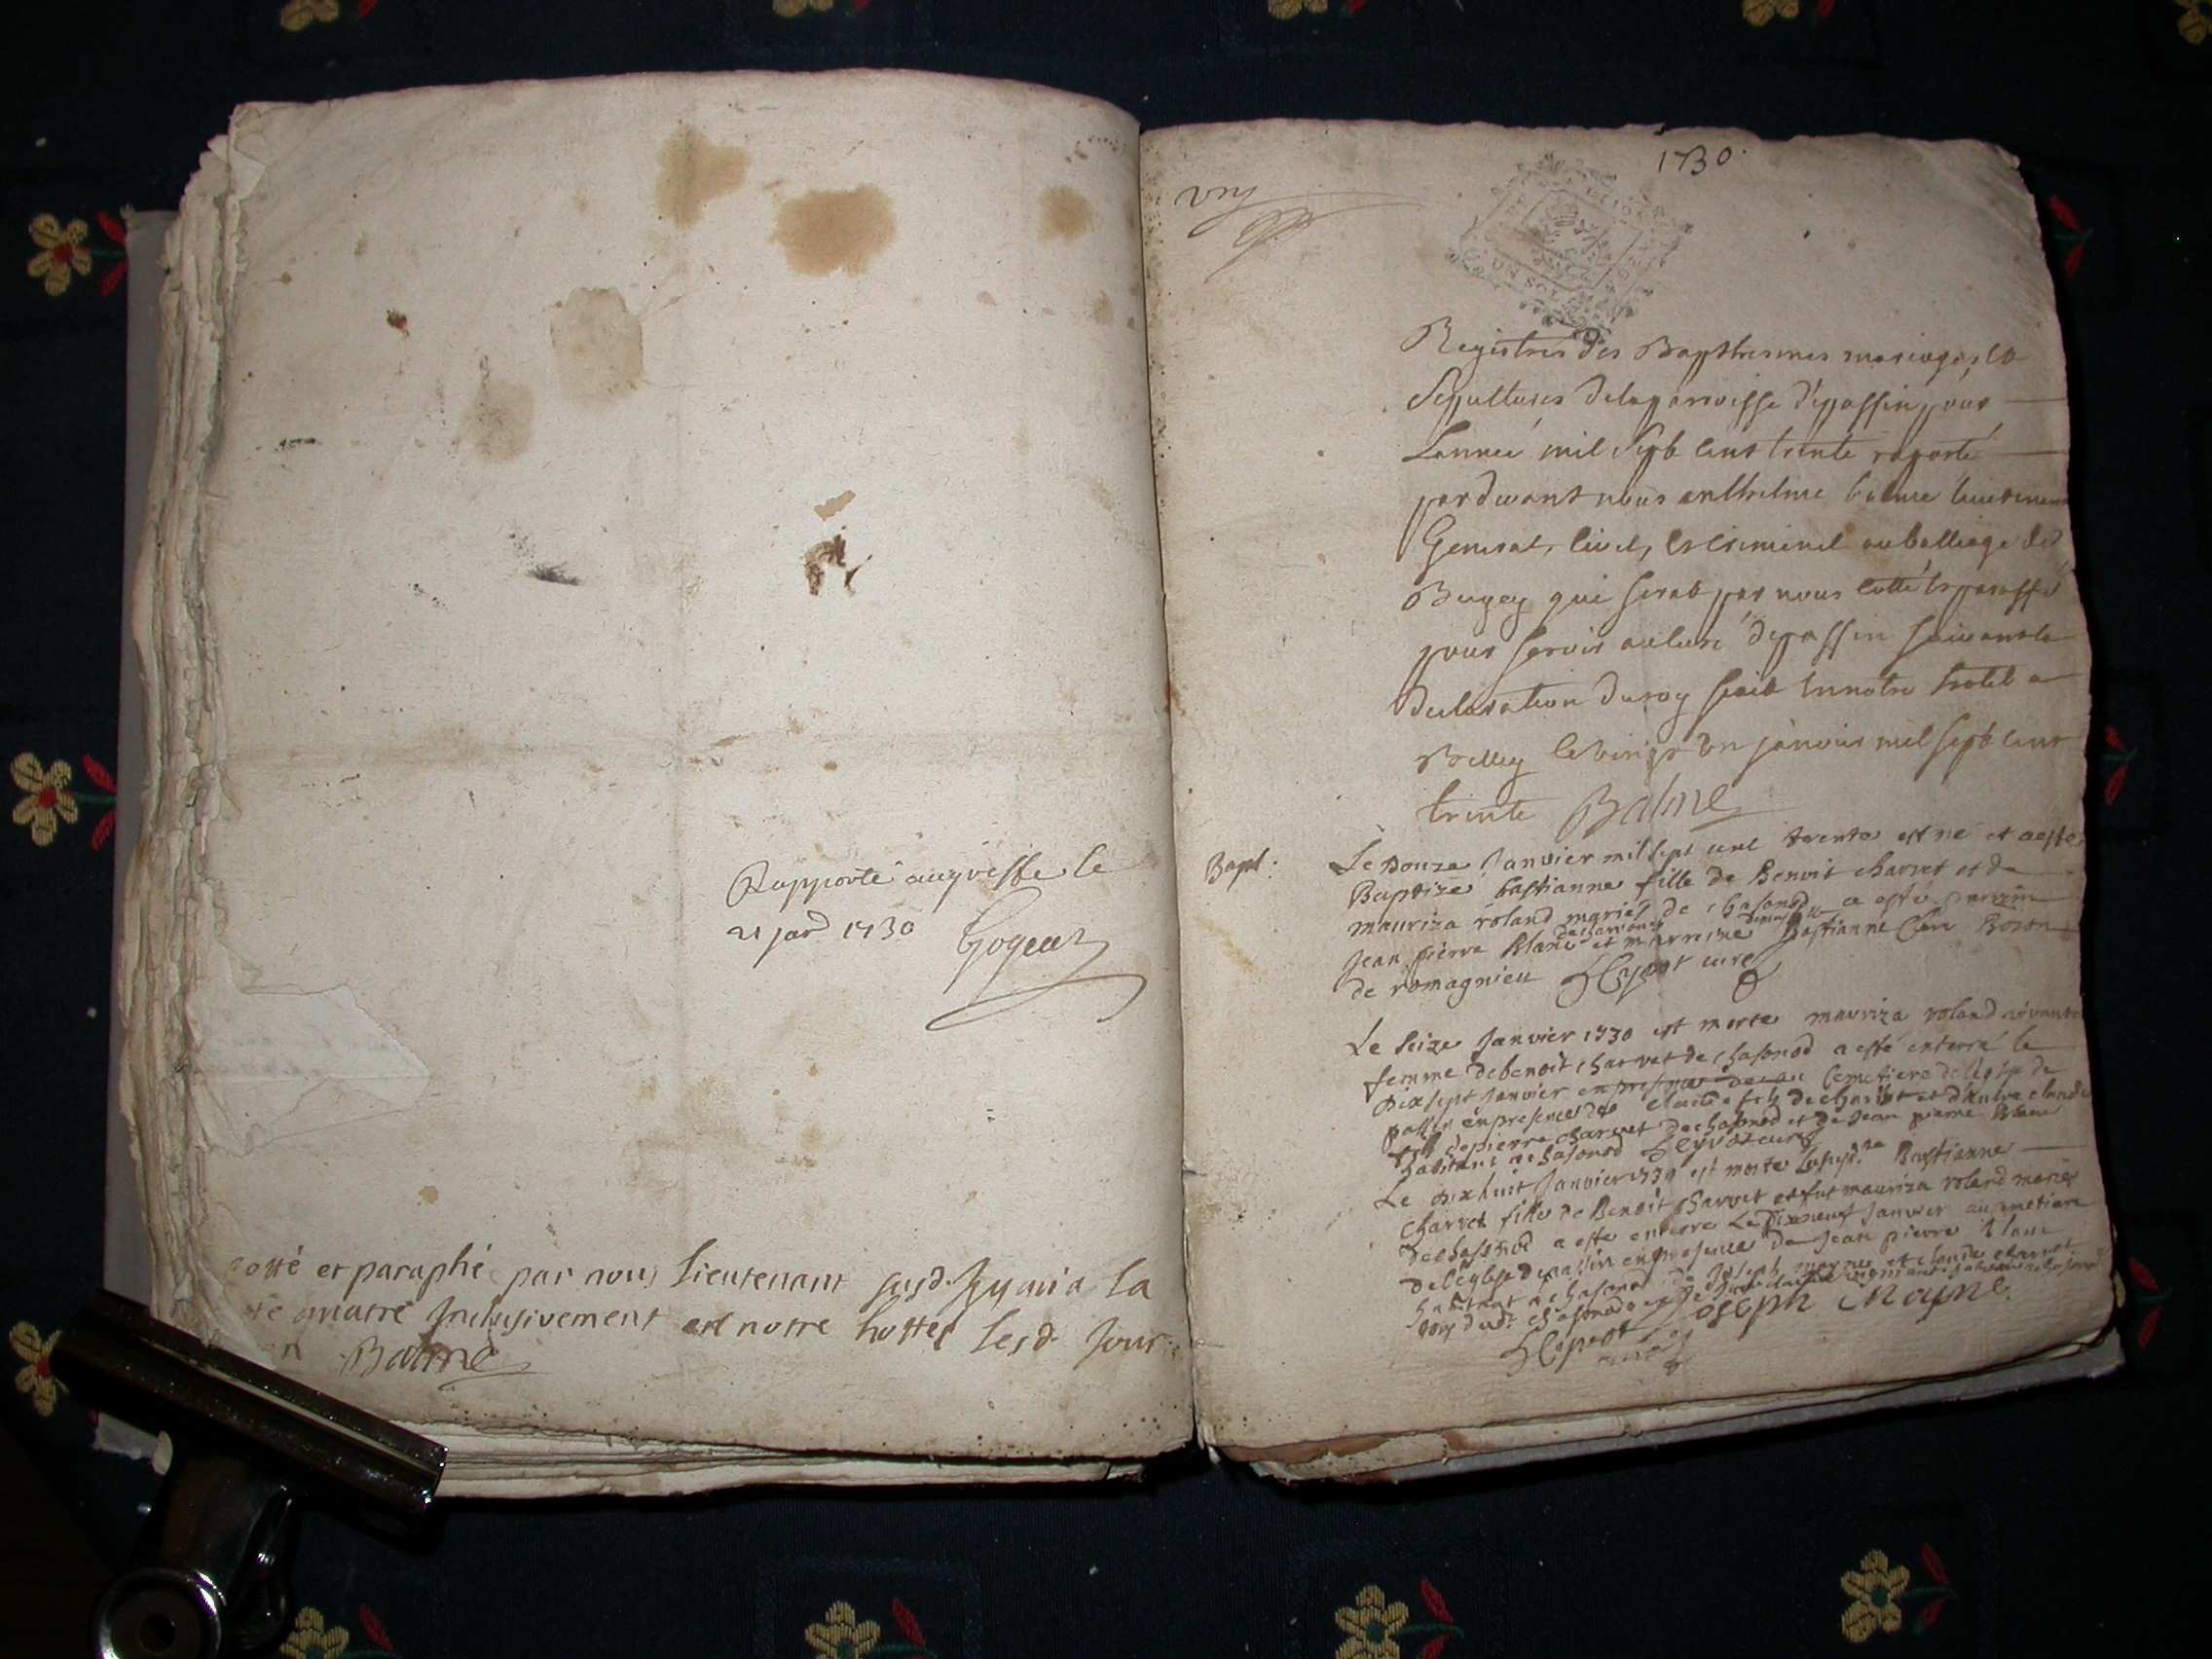 Rapporté au greffe le
21 janv 1730
cotté et paraphé par nous Lieutenant susd. Jusqu'a la
quatre Inclusivement en notre hostel lesd. Jour
Balme
1730.
UN SOL
Registres des Bapthesmes mariages, et
Sepultures de la parroisse de passin pour
Lannée mil Sept cent trente raporté
pardevant nous anthelme balme lieutenant
General, civil, et criminel au balliage de
Bugey qui serat par nous cotté et paraffé
pour servir au curé de passin suivant la
declaration du roy fait en notre hotel a
Belley le vingt un janvier mil sept cent
trente Balme
Bapt:
Le Douze Janvier mil sept cent trente est né et a esté
Baptize bastianne fille de Benoit charvet et de
mauriza roland mariés de chasonod a esté parrein
Jean pierre Blanc et marreine Bastianne
de romagnieu curé
Le seize Janvier 1730 est morte mauriza roland vivante
femme de benoit charvet de chasonod a esté enterré le
Dixsept Janvier en presence cemetiere de
passin en presence de claude fils de charvet et d'autre claude
fils de pierre charvet de chasonod et de Jean pierre Blanc
habitant a chasonod curé
Le dixhuit Janvier 1730 est morte Bastianne
charvet fille de Benoit charvet et fut mauriza roland mariés
de chasonod a esté enterré Le Dixneuf Janvier au cemetiere
de l'eglise de passin en presence de Jean pierre Blanc
habitant a chasonod de Joseph moyne et claude charvet
Joseph Moyne
curé